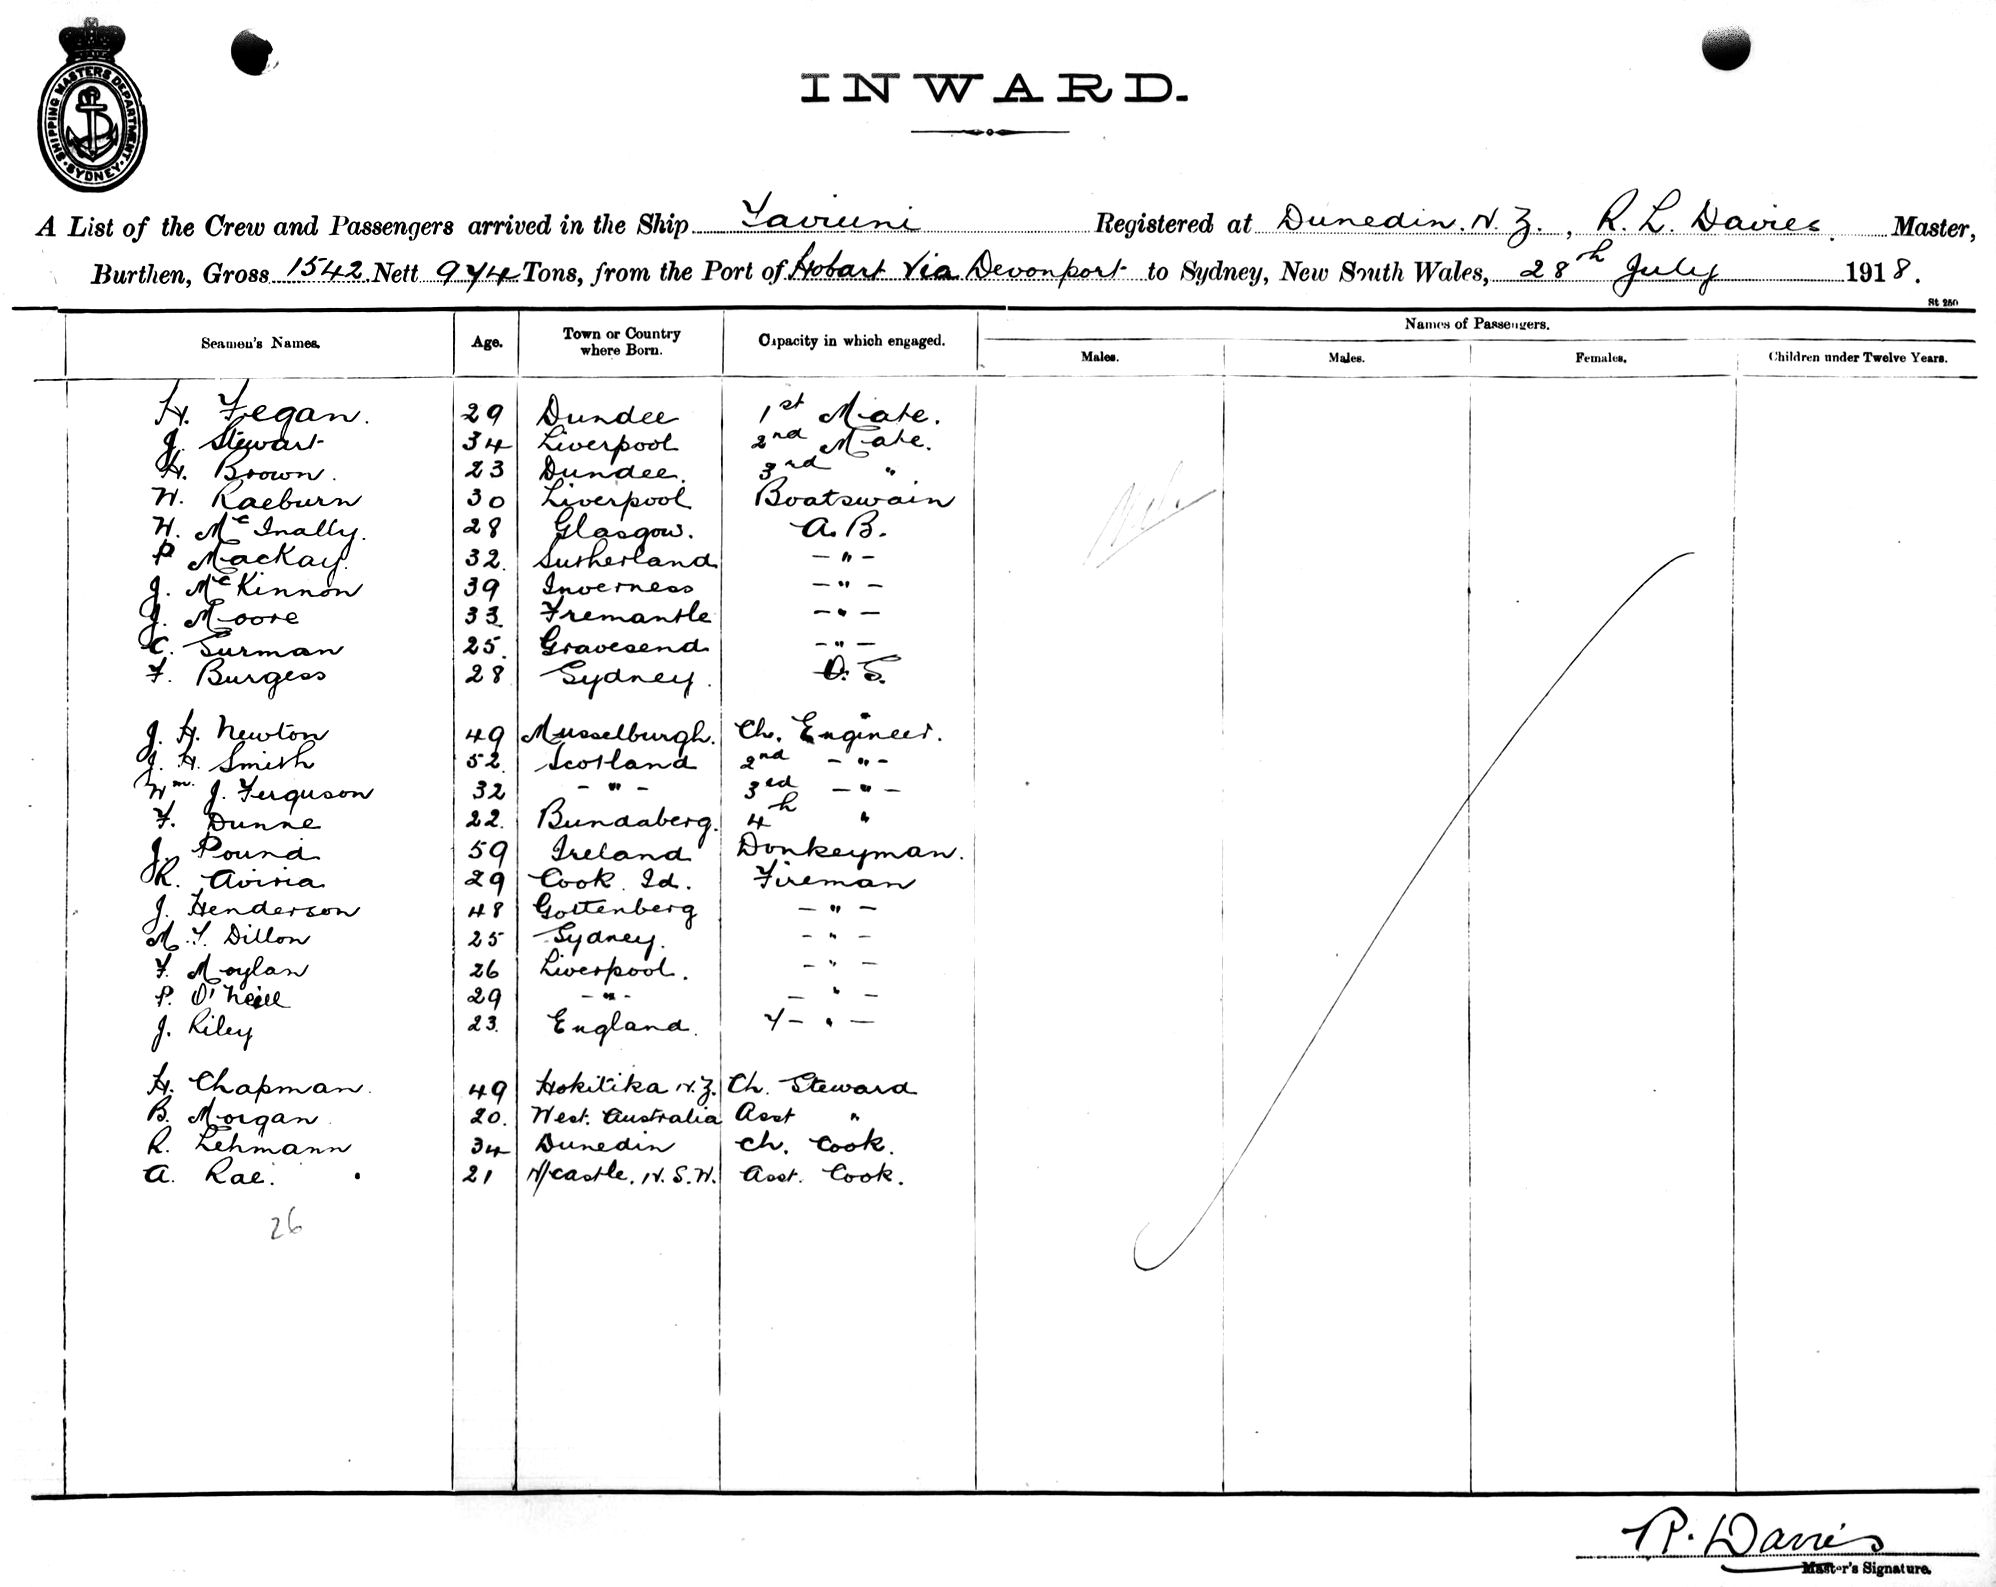 SHIPPING MASTERS DEPARTMENT. SYDNEY
INWARD.
A List of the Crew and Passengers arrived in the Ship Taviuni Registered at Dunedin. N. Z., R. L. Davies. Master,
Burthen, Gross 1542 Nett 974 Tons, from the Port of Hobart Via Devonport to Sydney, New South Wales, 28th July 1918.
St 250
Seamen's Names. Age. Town or Country where Born. Capacity in which engaged. Names of Passengers.
Males. Males. Females. Children under Twelve Years.
H. Fegan. 29 Dundee 1st Mate.
J. Stewart 34 Liverpool 2nd Mate.
H. Brown. 23 Dundee. 3rd "
W. Raeburn 30 Liverpool Boatswain
W. McInally. 28 Glasgow. A.B.
P Mackay. 32. Sutherland - " -
J. McKinnon 39 Inverness - " -
J. Moore 33 Fremantle - " -
C. Surman 25. Gravesend - " -
F. Burgess 28 Sydney. O.S.
J. H. Newton 49 Musselburgh. Ch. Engineer.
J. H. Smith 52. Scotland 2nd - " -
Wm. J. Ferguson 32 - " - 3rd - " -
F. Dunne 22. Bundaberg. 4th "
J. Pound 59 Ireland Donkeyman.
R. 29 Cook Id. Fireman
J. Henderson 48 Gottenberg - " -
M. F. Dillon 25 Sydney. - " -
F. Moylan 26 Liverpool. - " -
P. O'Neill 29 - " - - " -
J. Riley 23. England. - " -
H. Chapman. 49 Hokitika N.Z. Ch. Steward
B. Morgan 20. West. Australia Asst "
R. Lehmann 34 Dunedin Ch. Cook.
A. Rae. 21 N/castle. N.S.W. Asst. Cook.
26
R. Davies
Master's Signature.